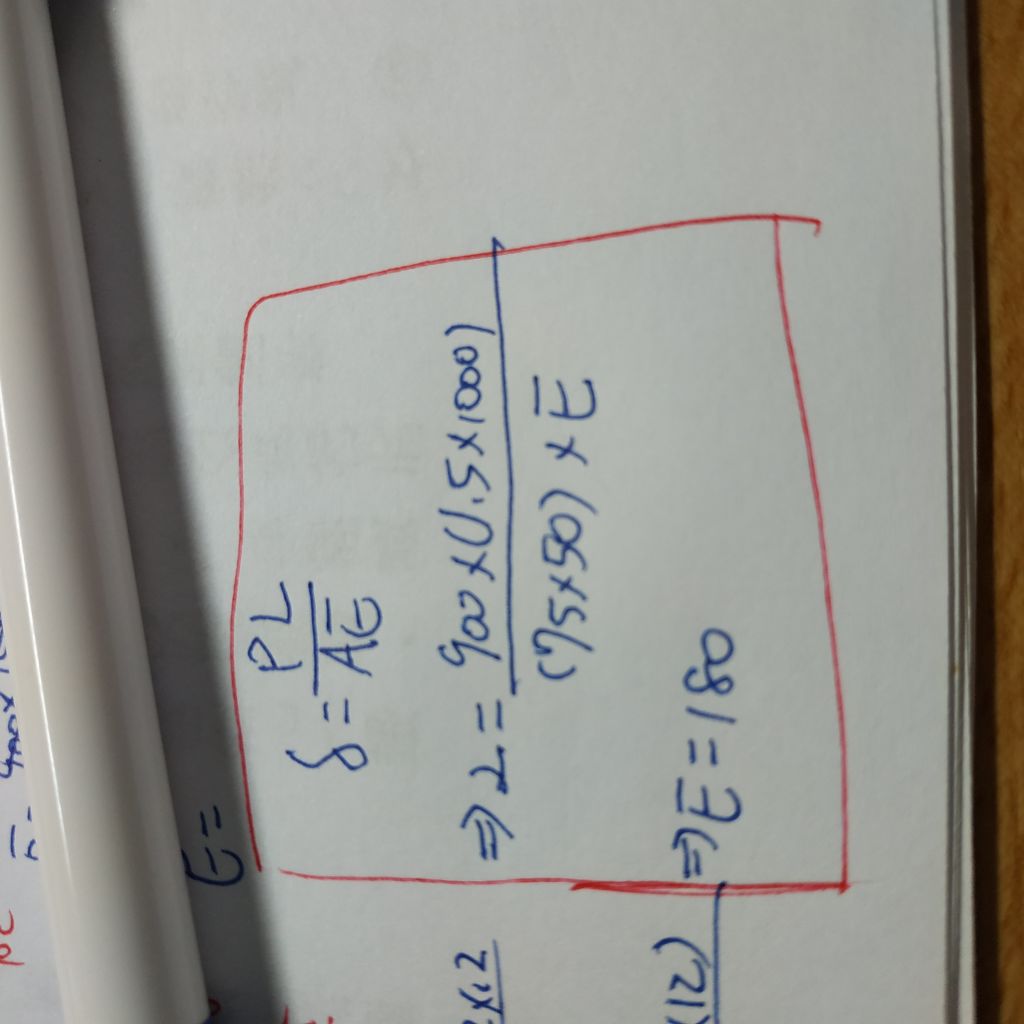 δ = PL / AE
⇒ 2 = 900 x (1.5 x 1000) / (75 x 50) x E
⇒ E = 180
E =
x12
x12)